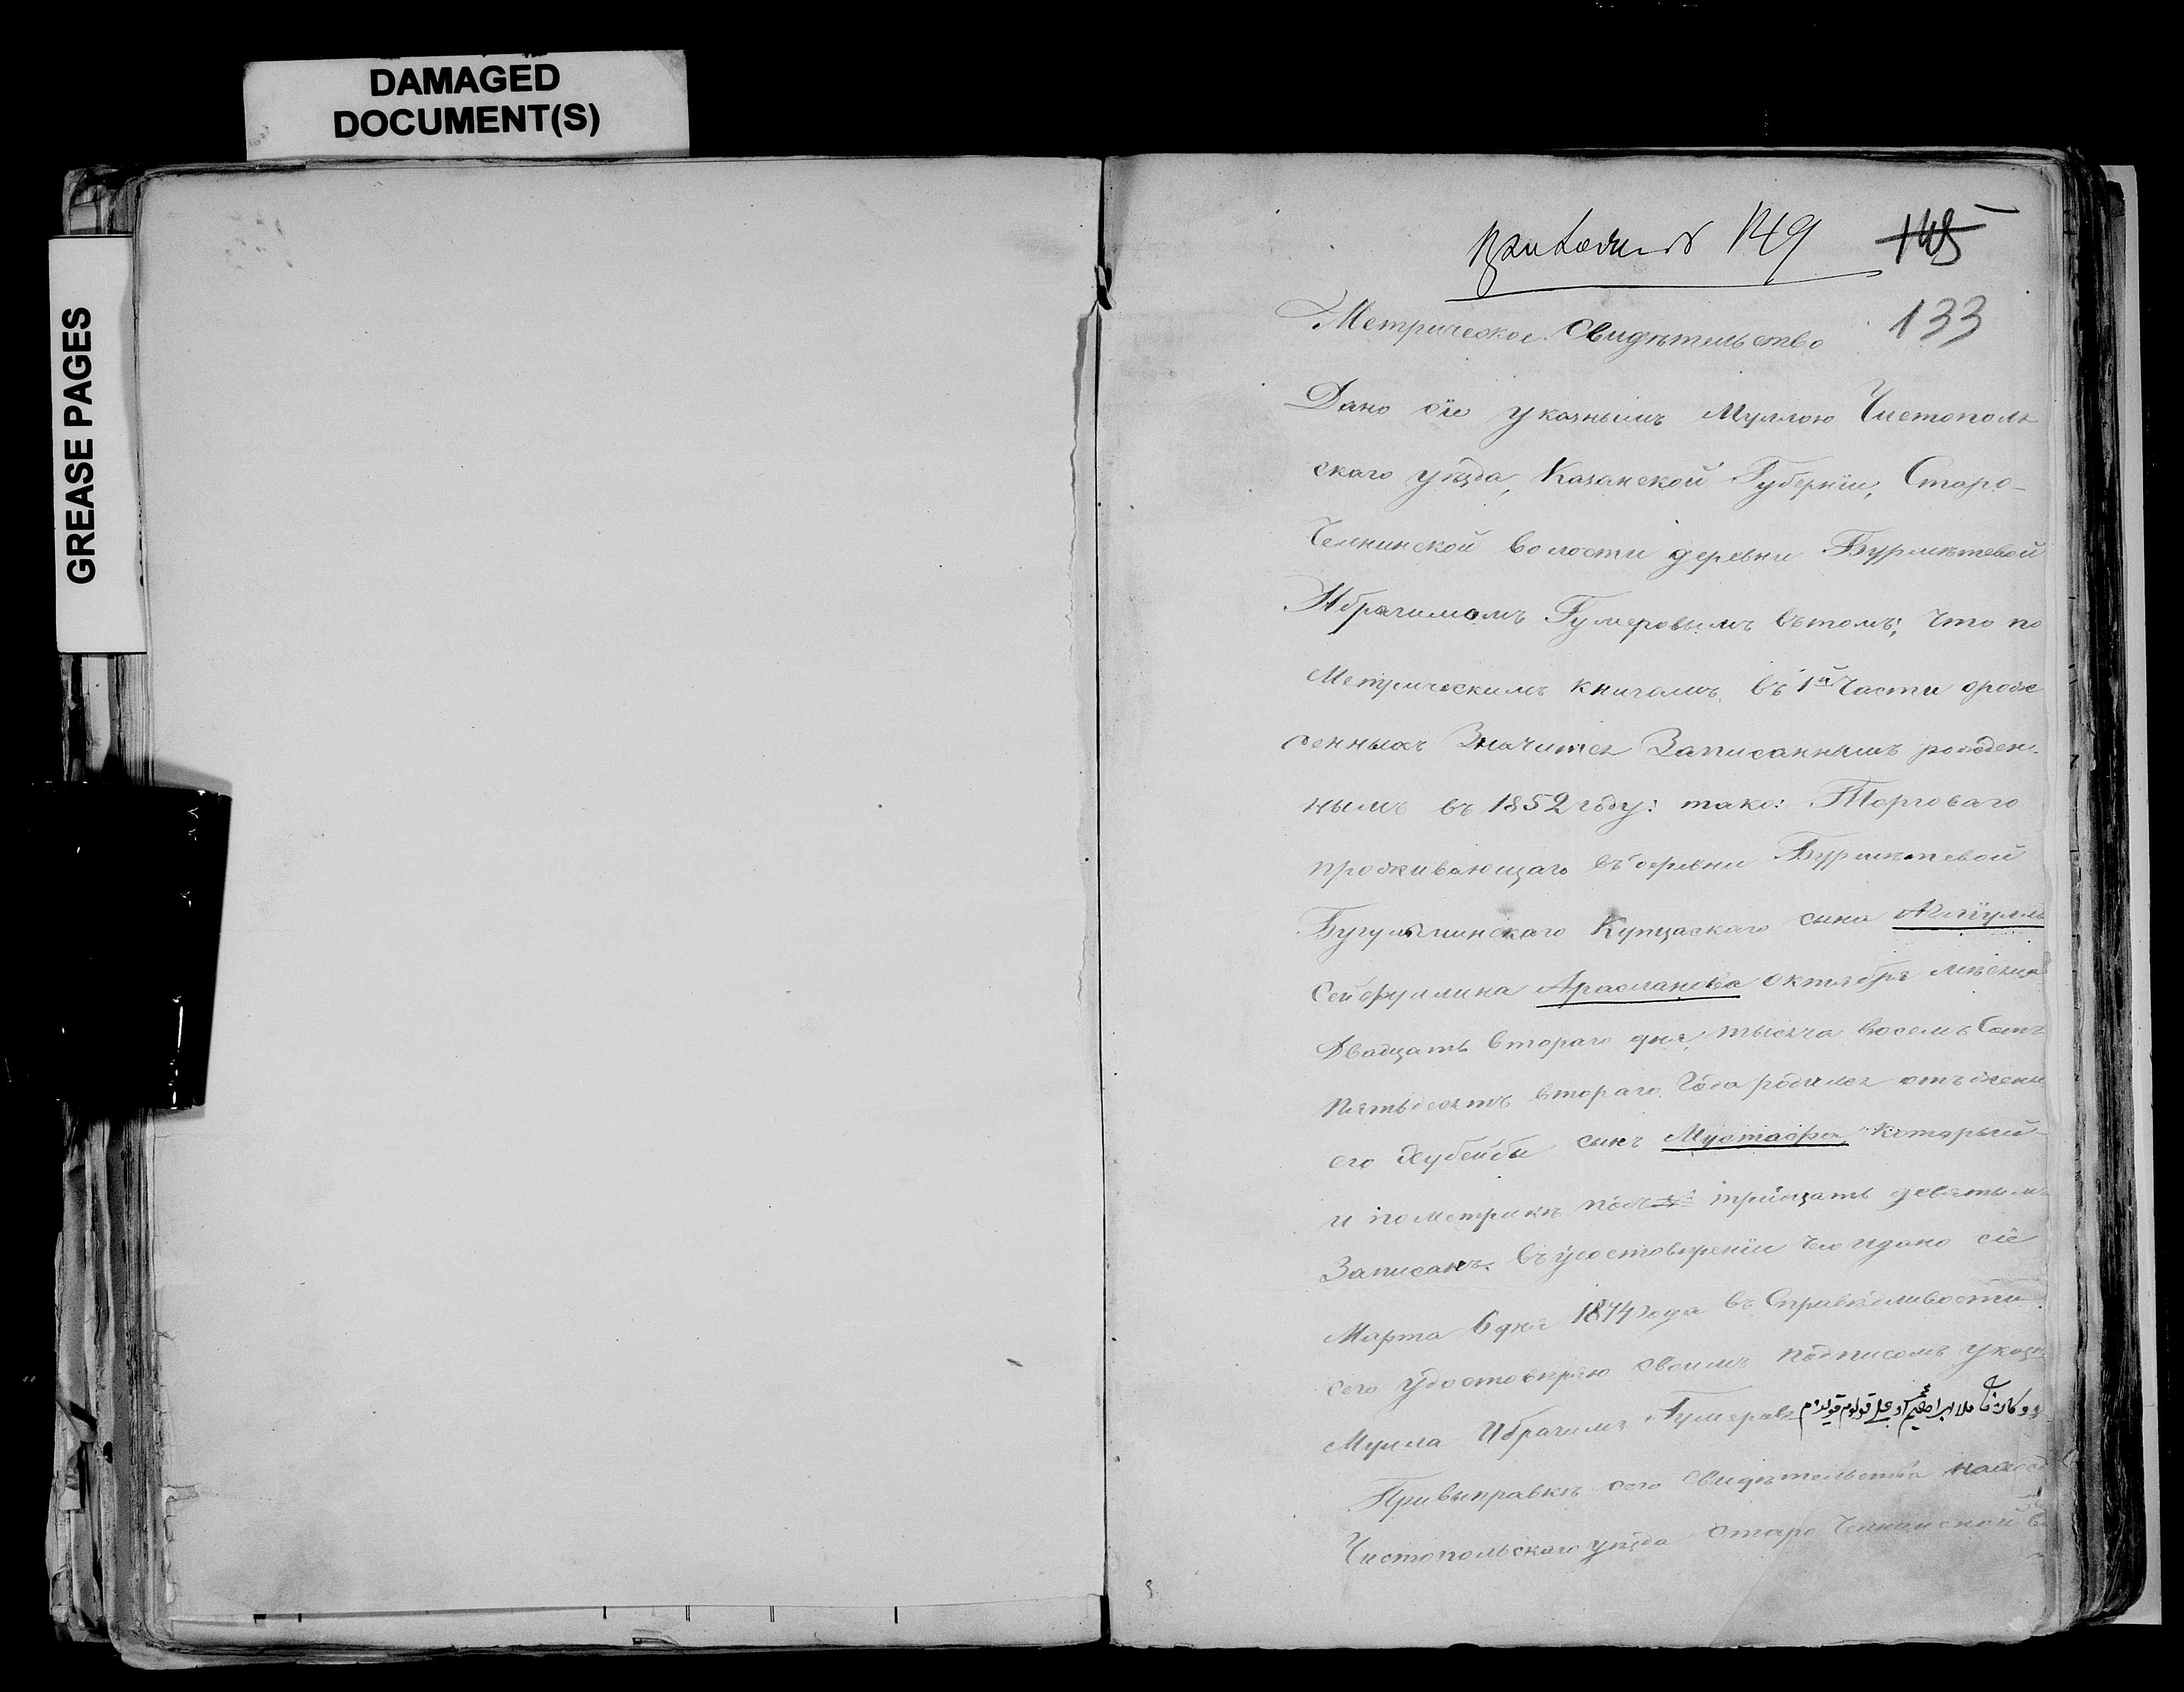 DAMAGED
DOCUMENT(S)
GREASE PAGES
149 145
Метрическое Свидѣтельство 133
Дано сіе указнымъ Муллою Чистополь
скаго уѣзда, Казанской Губерніи, Старо-
Челнинской волости деревни Бурметевой
Ибрагимомъ Гумеровымъ въ томъ; что по
Метрическимъ книгамъ въ 1й части о рож
денныхъ Значится Записаннымъ рожден-
нымъ въ 1852 году: тако: Торговаго
проживающаго въ деревни Бурметевой
Бугульминскаго Купцаскаго сына
Сейфуллина Арасланова октября мѣсяца
Двадцать втораго дня, тысяча восемь Сотъ
пятьдесятъ втораго Года родился отъ жены
его Хубейбы сынъ Мустафа который
и по метрикѣ подъ № тридцать девятымъ
Записанъ. въ удостовѣреніи чего и дано сіе
Марта 6 дня 1874 года въ Справедливости
сего удостовѣряю своимъ подписомъ указн
Мулла Ибрагимъ Гумеровъ ملا ابراهيم قولوم قويدم
При выправкѣ сего Свидѣтельства
Чистопольскаго уѣзда Старо Челнинской